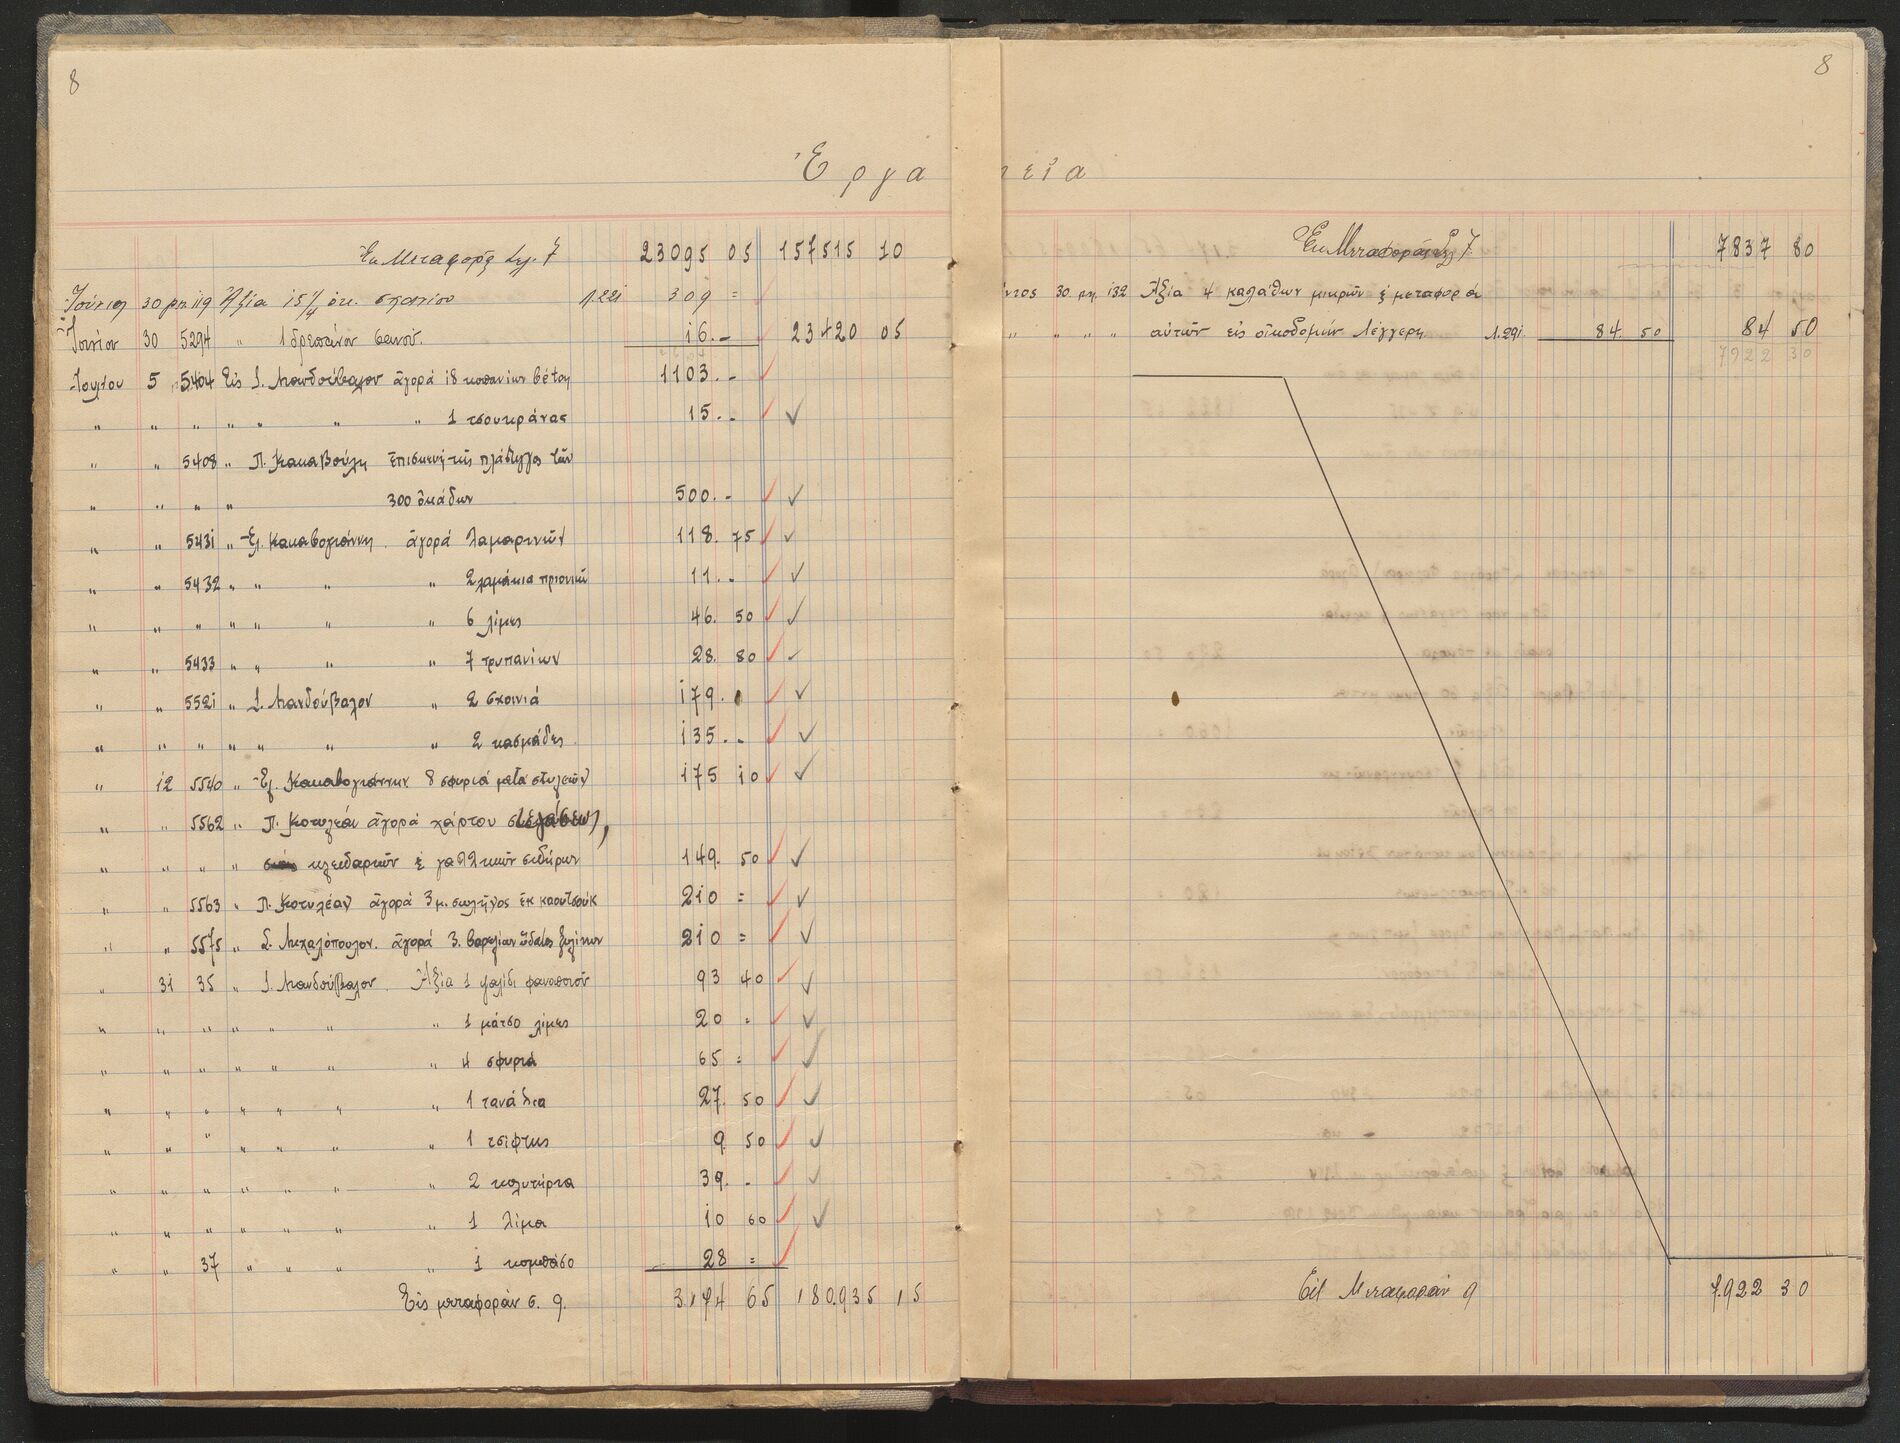 8
Ἐργα
Ἐκ Μεταφορᾶς Σελ. 7 23095 05 157515 10
Ἰούνιος 30 ρπ. 119 Ἀξία 15 1/4 ὀκ. σχοινίου 122i 309 =
Ἰουνίου 30 5294 " 1 δρεπάνον 16.- 23420 05
Ἰουλίου 5 5404 Εἰς Σ. Μανδούβαλον ἀγορά 18 κοπανίων βέτου 1103.-
" " " " " " " 1 τσουγκράνας 15.-
" " 5408 " Π. Κακαβούλη ἐπισκευή τῆς πλάστιγγος τῶν
" " " " 300 ὀκάδων 500.-
" " 5431 " Ἐλ. Κακαβογιάννη. ἀγορά λαμαρινῶν 118. 75
" " 5432 " " " " 2 λαμάκια πριονιοῦ 11.-
" " " " " " " 6 λίμες 46. 50
" " 5433 " " " " 7 τρυπανίων 28. 80
" " 5521 " Σ. Μανδούβαλον " 2 σχοινιά 179.
" " " " " " " 2 κασμάδες 135.-
" 12 5540 " Ἐλ. Κακαβογιάννην 8 σφυριά μετά στυλειῶν 175 10
" " 5562 " Π. Κοτυλέαν ἀγορά χάρτου στεγάσεως,
" " " " κλειδαριῶν & γαλλικῶν σιδήρων 149. 50
" " 5563 " Π. Κοτυλέαν ἀγορά 3 μ. σωλῆνος ἐκ καουτσούκ 210 =
" " 5575 " Σ. Μιχαλόπουλον. ἀγορά 3. βαρελίων ὕδατος ξυλίνων 210 =
" 31 35 " Σ. Μανδούβαλον. Ἀξία 1 ψαλίδι φανοποιοῦ 93 40
" " " " " " " 1 μάτσο λίμες 20 =
" " " " " " " 4 σφυριά 65 =
" " " " " " " 1 τανάλια 27. 50
" " " " " " " 1 τσίφτης 9 50
" " " " " " " 2 κολυτήρια 39.-
" " " " " " " 1 λίμα 10 60
" " 37 " " " " 1 κομπάσο 28 =
Εἰς μεταφοράν σ. 9. 3174 65 180.935 15
8
λεῖα
Ἐκ Μεταφορᾶς Σελ 7. 7837 80
30 ρπ. 132 Ἀξία 4 καλάθων μικρῶν & μεταφορά
" " " " αὐτῶν εἰς οἰκοδομήν Λέγγερη 1.291 84. 50 84 50
7922 30
Εἰς Μεταφοράν 9 7.922 30